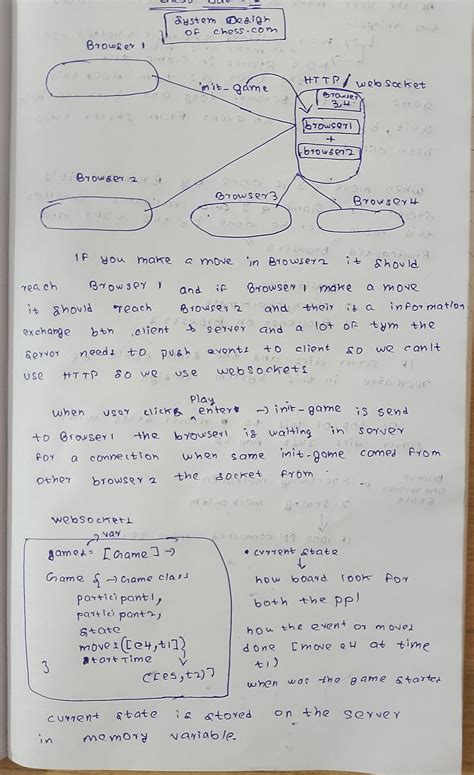 System Design
of chess.com
Browser 1
init-game
HTTP/websocket
Browser
3,4
browser1
+
browser2
Browser 2
Browser3
Browser4
If you make a move in Browser2 it should
reach Browser1 and if Browser1 make a move
it should reach Browser2 and their is a information
exchange btn client & server and a lot of tym the
server needs to push events to client so we can't
use HTTP so we use websockets
when user clicks Play enters → init-game is send
to Browser1 the browser1 is waiting in server
for a connection when same init-game comes from
other browser2 the socket from
websockets
var
games = [Game] →
Game { → Game class
participant1,
participant2,
state
moves([e4,t1])
startTime
([e5,t2)]
}
• current state
how board look for
both the ppl
how the event or moves
done [move e4 at time
t1)
when was the game started
current state is stored on the server
in memory variable.